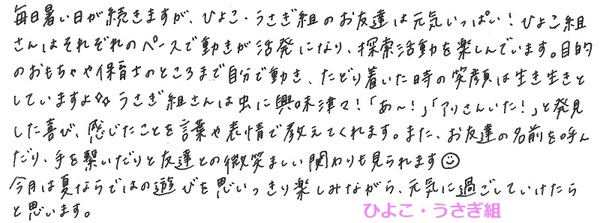 毎日暑い日が続きますが、ひよこ・うさぎ組のお友達は元気いっぱい！ひよこ組
さんはそれぞれのペースで動きが活発になり、探索活動を楽しんでいます。目的
のおもちゃや保育士のところまで自分で動き、たどり着いた時の笑顔は生き生きと
していますよ♪♪うさぎ組さんは虫に興味津々！「あ～！」「アリさんいた！」と発見
した喜び、感じたことを言葉や表情で教えてくれます。また、お友達の名前を呼ん
だり、手を繋いだりと友達との微笑ましい関わりも見られます☺
今月は夏ならではの遊びを思いっきり楽しみながら、元気に過ごしていけたら
と思います。
ひよこ・うさぎ組